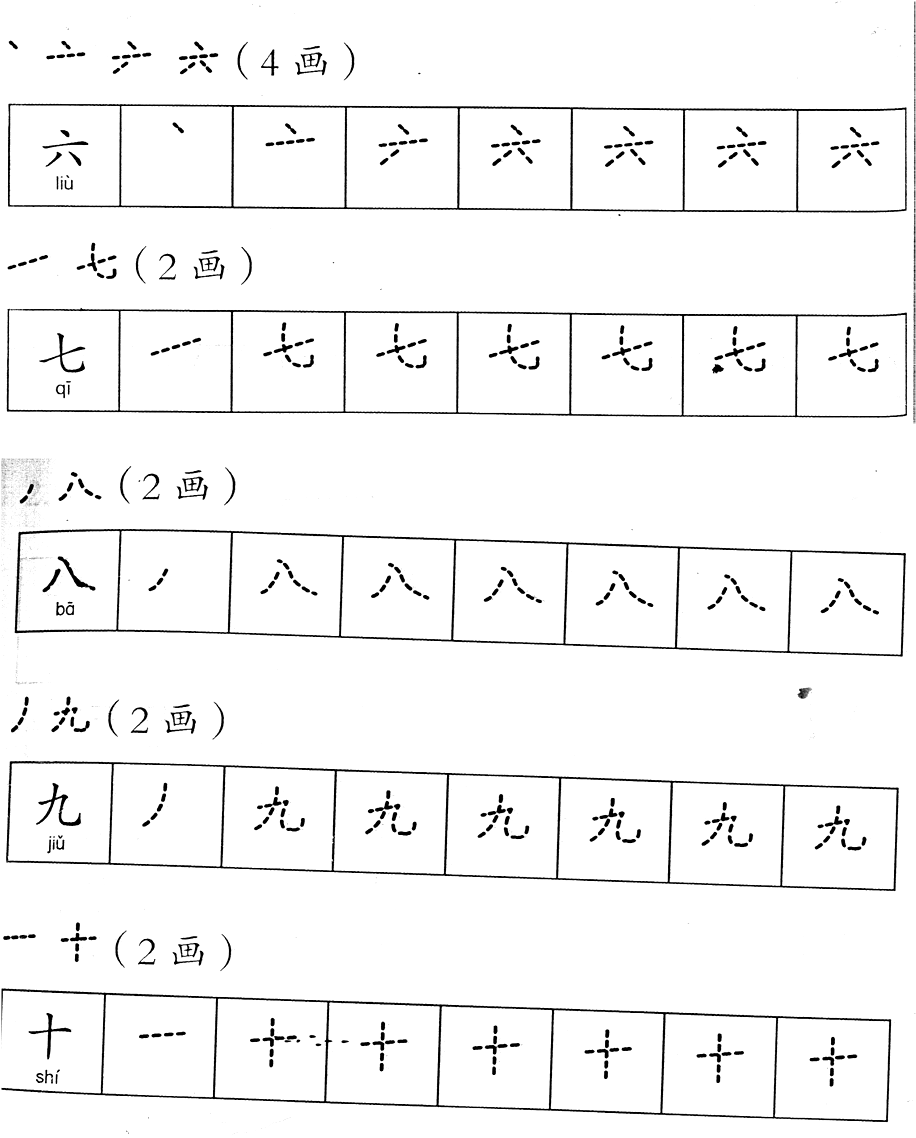 丶 亠 六 六 (4 画)
六 丶 亠 六 六 六 六 六
liù
一 七 (2 画)
七 一 七 七 七 七 七 七
qī
丿 八 (2 画)
八 丿 八 八 八 八 八 八
bā
丿 九 (2 画)
九 丿 九 九 九 九 九 九
jiǔ
一 十 (2 画)
十 一 十 十 十 十 十 十
shí